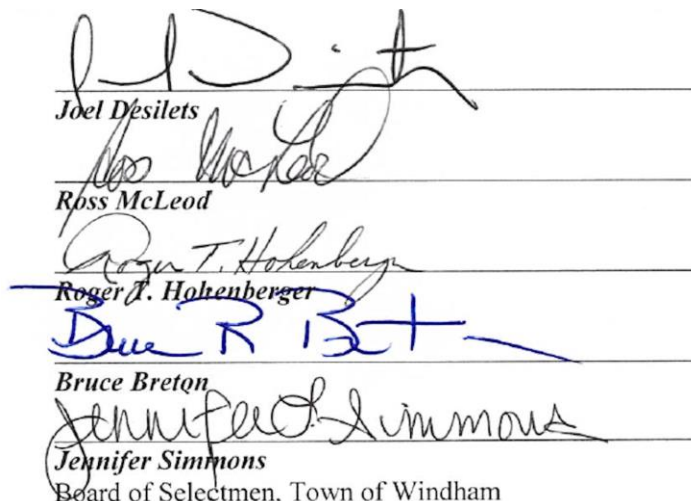 Joel Desilets
Ross McLeod
Ross McLeod
Roger T. Hohenberger
Roger T. Hohenberger
Bruce R Breton
Bruce Breton
Jennifer L. Simmons
Jennifer Simmons
Board of Selectmen, Town of Windham